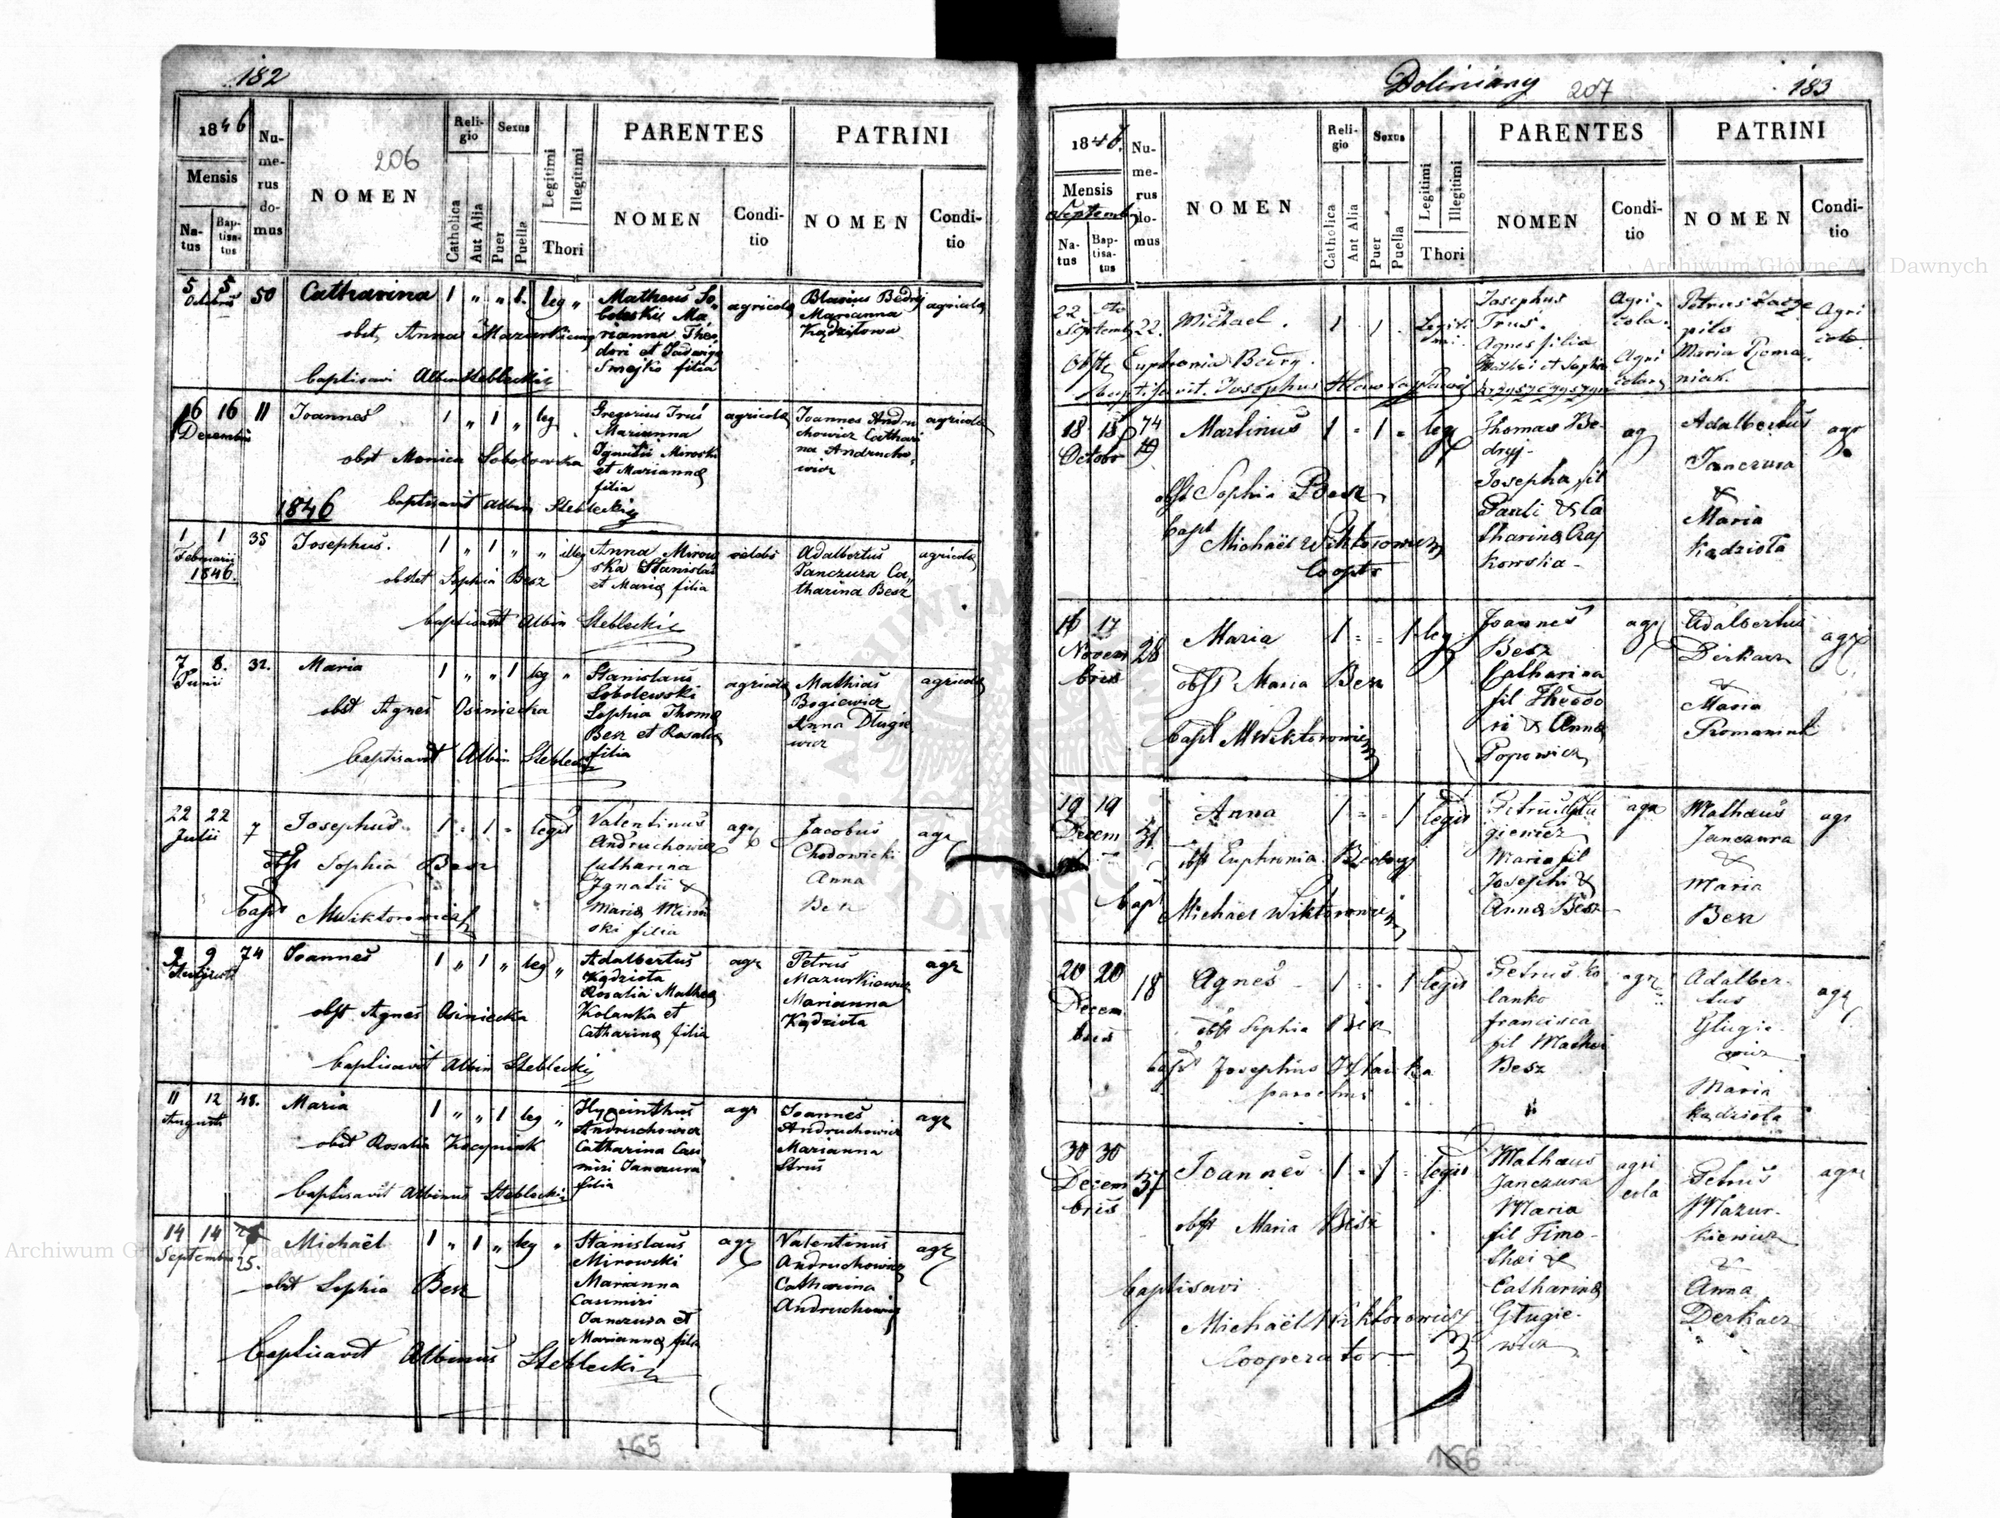 182
1846
Mensis
Natus
Baptisatus
Numerus domus
206
NOMEN
Religio
Catholica
Aut Alia
Sexus
Puer
Puella
Legitimi
Illegitimi
Thori
PARENTES
NOMEN
Conditio
PATRINI
NOMEN
Conditio
5 5 50 Catharina 1 " " 1. leg " Matheus So agricola Blasius Bedrij agricola
Octobris
Marianna
obst Anna Mazurkiewicz rianna Theo
Kądziłowa
dori et Jadwiga
baptisavi Albin Steblecki Smejko filia
16 16 11 Joannes 1 " 1 " leg Gregorius Truś agricola Joannes Andru agricola
Decembris
Marianna
chowicz Cathari
obst Monica Sobolewska
Ignatii Miroski
na Andrucho
et Marianna
wicz
filia
1846 baptisavit Albin Steblecki
1 1 35 Josephus. 1 " 1 " " illeg Anna Mirow Adalbertus agricola
Februarii
ska Stanislai
Janczura Ca
1846
obstet Sophia Besz et Maria filia
tharina Besz
baptisavit Albin Steblecki
7 8. 32. Maria 1 " " 1 leg " Stanislaus agricola Mathias agricola
Junii
Sobolewski
Bogiewicz
obst Agnes Osiniecka Sophia Thoma
Anna Długie
Besz et Rosalia
wicz
baptisavit Albin Steblecki filia
22 22 7 Josephus 1 - 1 - legit Valentinus agr Jacobus agr
Julii
Andruchowicz
Chodowicki
obst Sophia Besz Catharina
Anna
Ignatii &
Besz
bapt MWiktorowicz Maria Miro
ski filia
9 9 74 Joannes 1 " 1 " leg " Adalbertus agr Petrus agr
Augusti
Kądziota
Mazurkiewicz
Rosalia Mathea
Marianna
obst Agnes Osiniecka Kolanka et
Kądziota
Catharina filia
baptisavit Albin Steblecki
11 12 48. Maria 1 " " 1 leg " Hyacinthus agr Joannes agr
Augusti
Andruchowicz
Andruchowicz
obst Rosalia Catharina Casi
Marianna
miri Janczura
Strus
filia
baptisavit Albinus Steblecki
14 14 25. Michaël 1 " 1 " leg " Stanislaus agr Valentinus agr
Septembris
Mirowski
Andruchowicz
obst Sophia Besz Marianna
Catharina
Casimiri
Andruchowicz
Janczura et
Marianna filia
baptisavit Albinus Steblecki
165
Doliniany 207 183
1846.
Mensis
Septemb
Natus
Baptisatus
Numerus domus
NOMEN
Religio
Catholica
Aut Alia
Sexus
Puer
Puella
Legitimi
Illegitimi
Thori
PARENTES
NOMEN
Conditio
PATRINI
NOMEN
Conditio
22 22. Michael. 1 1 Josephus Agricola Petrus Agricola
Septemb
Truś.
Agnes filia
Maria Roma
Obst Euphronia Bedry.
niak.
baptisavit Josephus
18 18 74 Martinus 1 - 1 - leg Thomas Be ag Adalbertus agr
Octobr
dryj
Janczura
Josepha fil
&
obst Sophia Besz Pauli & Ca
Maria
bapt Michaël Wiktorowicz tharina Czaj
Kądziota
Coopr kowska
16 17 28 Maria 1 - - 1 leg Joannes agr Adalbertus agr
Novem
Besz
Derkacz
bris
Catharina
&
obst Maria Besz fil Theodo
Maria
ri & Anna
Romaniuk
bapt MWiktorowicz Popowicz
19 19 Anna 1 - - 1 legit Petrus Głu agr Mathaus agr
Decem
giewicz
Janczura
Maria fil
&
obst Euphronia Bedryj Josephi &
Maria
Anna Besz
Besz
bapt Michaël Wiktorowicz
20 20 18 Agnes 1 - - 1 legit Petrus Ko agr Adalber agr
Decem
lanko
tus
bris
Francisca
Glugie
obst Sophia Besz fil Mathei
wicz
Besz
Maria
bapt Josephus
Kądziota
parochus
30 30 37 Joannes 1 - 1 - legit Mathaus agricola Petrus agr
Decem
Janczura
Mazur
bris
Maria
kiewicz
obst Maria Besz fil Timo
&
thei &
Anna
baptisavi Catharina
Derkacz
Michaël Wiktorowicz Glugie
Cooperator wicz
166
Archiwum Główne Akt Dawnych